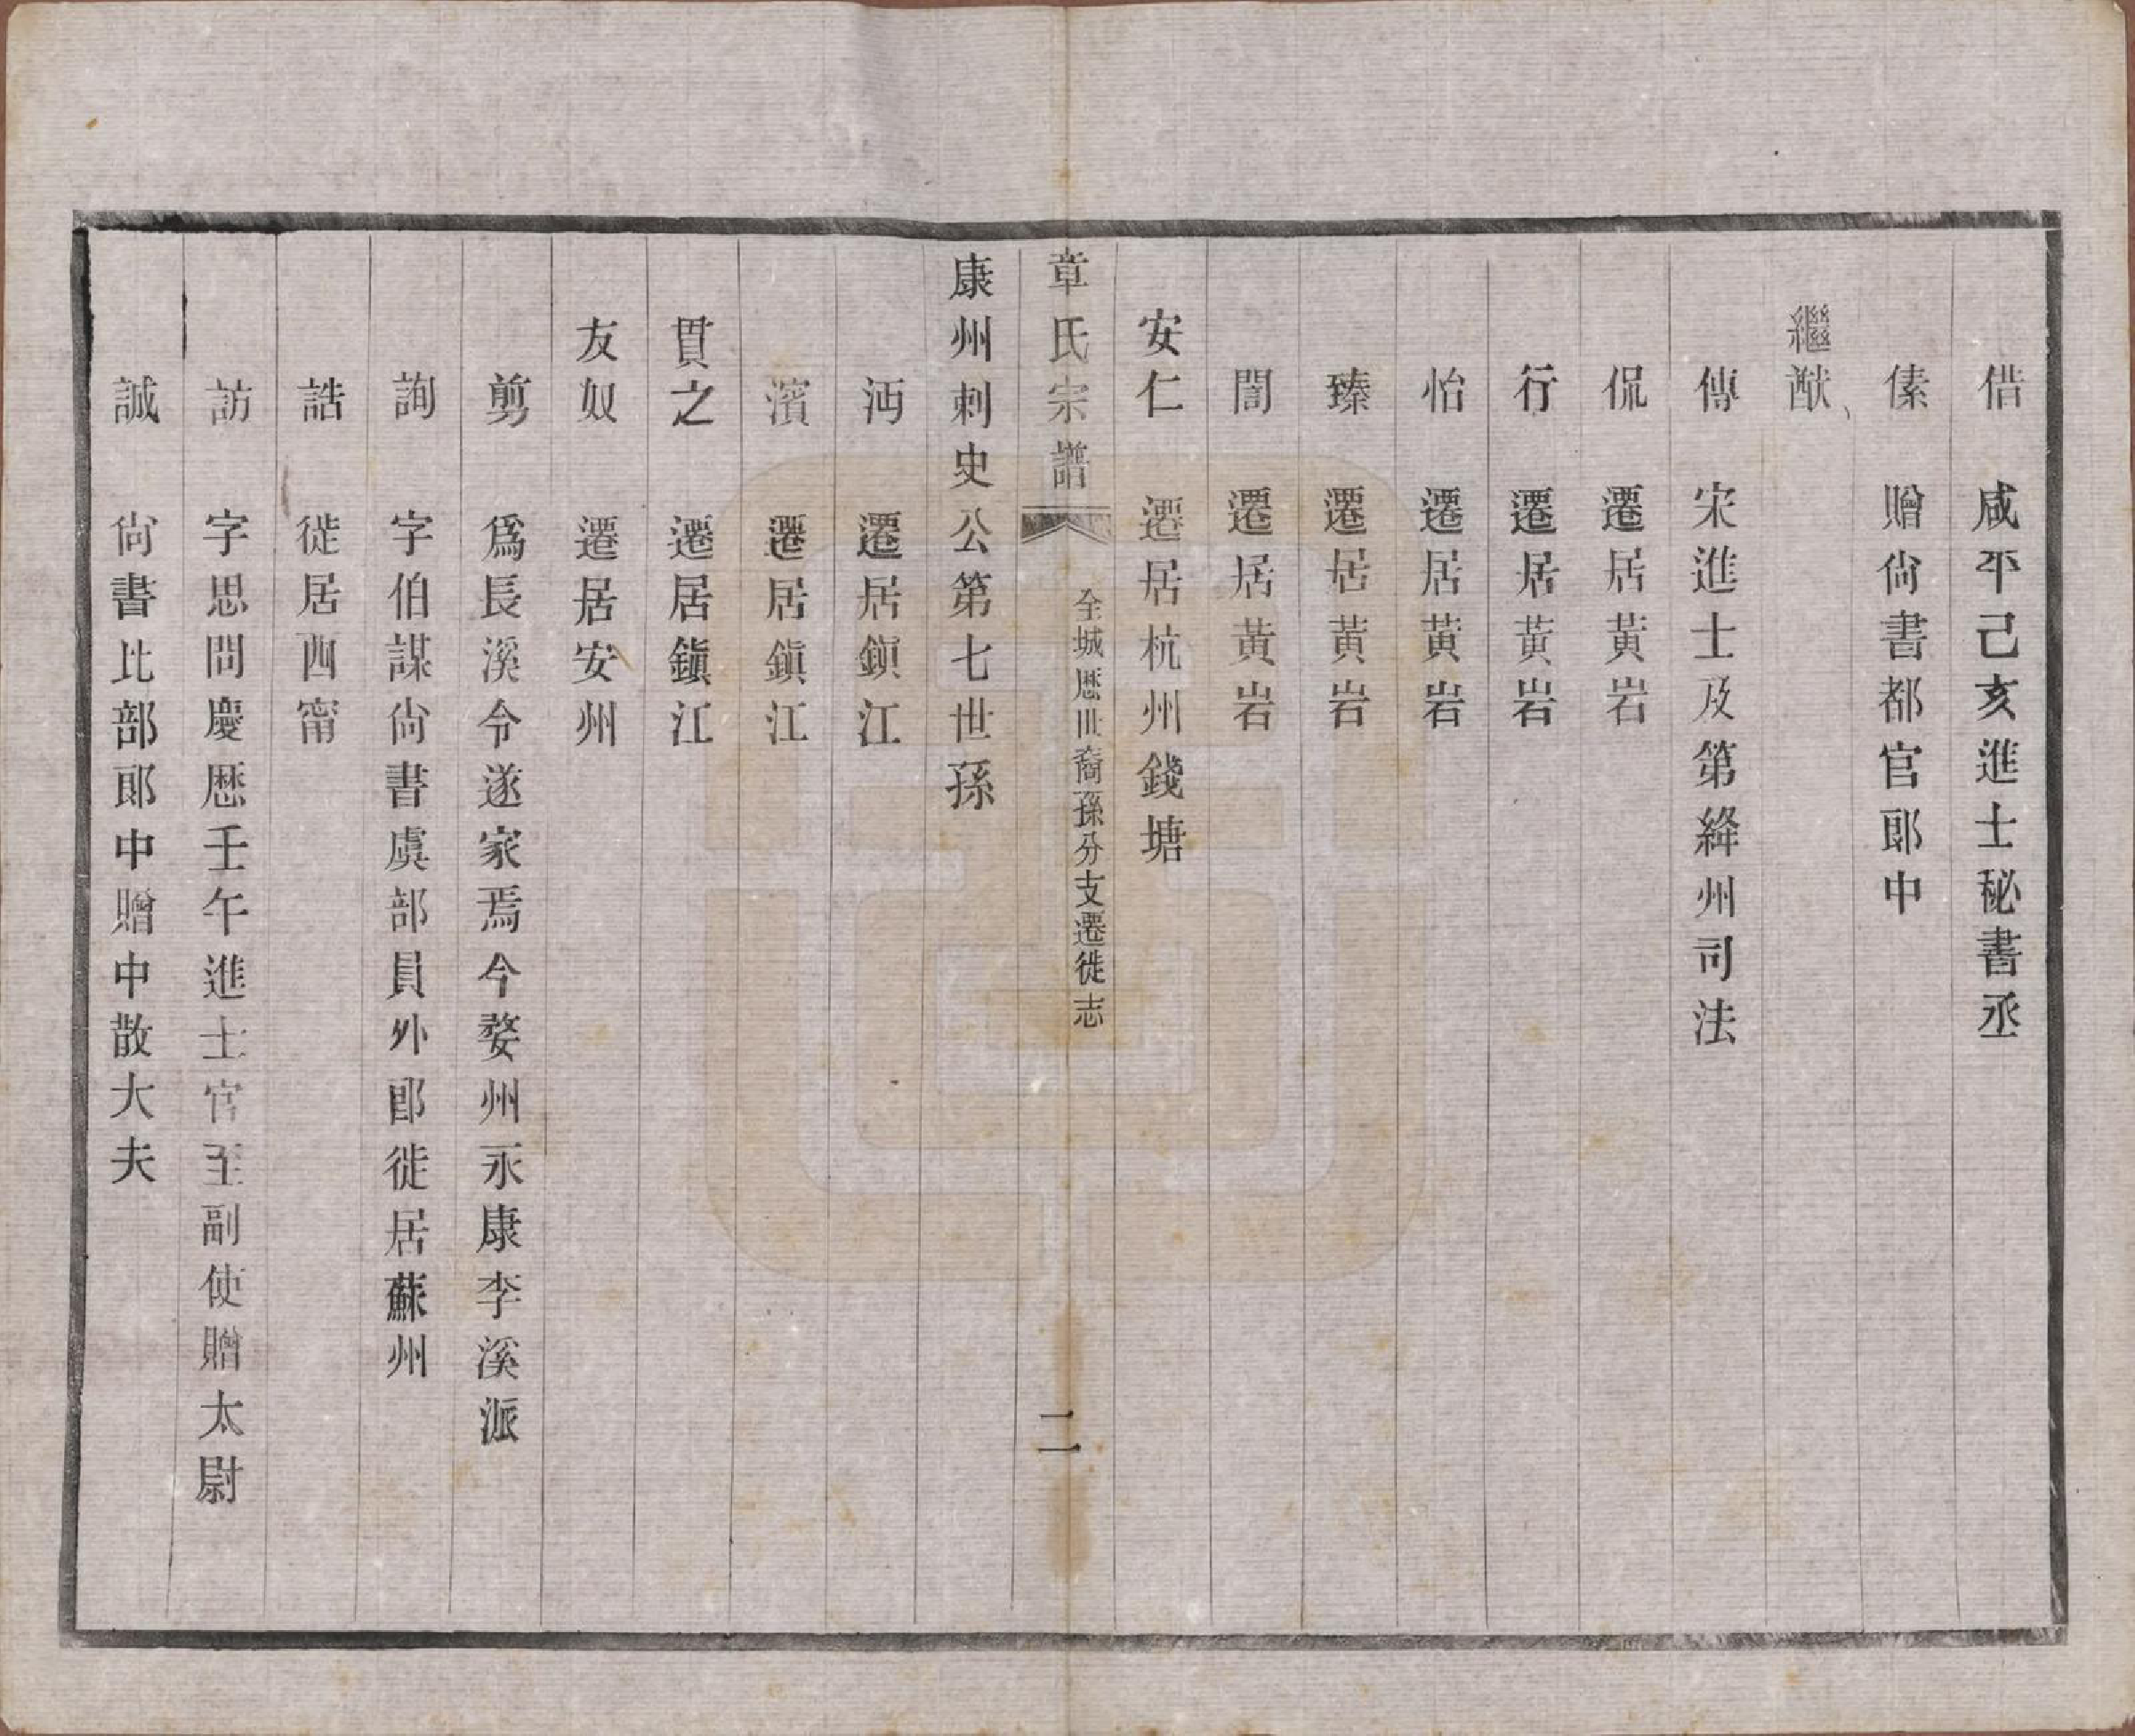 偕 咸平己亥進士秘書丞
傃 贈尙書都官郎中
繼猷
傳 宋進士及第絳州司法
侃 遷居黃岩
行 遷居黃岩
怡 遷居黃岩
臻 遷居黃岩
誾 遷居黃岩
安仁 遷居杭州錢塘
章氏宗譜 全城歷世裔孫分支遷徙志 二
康州刺史公第七世孫
沔 遷居鎭江
濱 遷居鎭江
貫之 遷居鎭江
友奴 遷居安州
剪 爲長溪令遂家焉今婺州永康李溪派
詢 字伯謀尙書虞部員外郎徙居蘇州
誥 徙居西甯
訪 字思問慶歷壬午進士官至副使贈太尉
誠 尙書比部郎中贈中散大夫